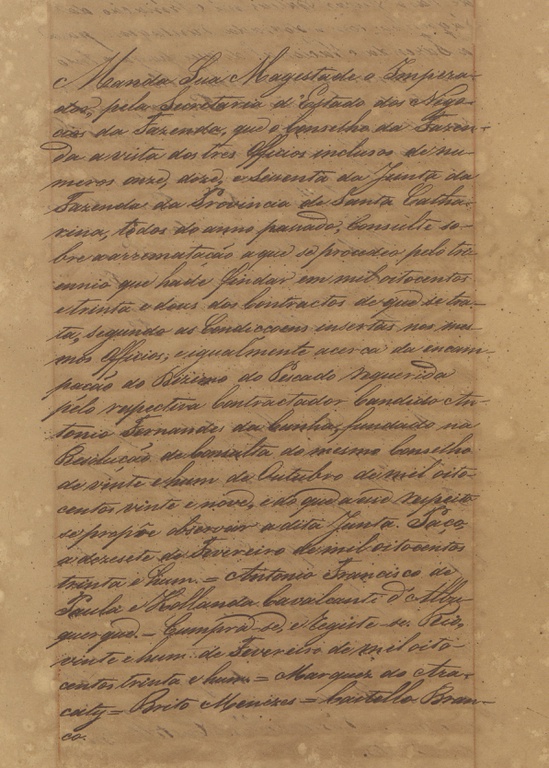 Manda Sua Magestade o Impera-
dor, pela Secretaria d'Estado dos Nego-
cios da Fazenda, que o Conselho da Fazen-
da a vista dos tres Officios inclusos de nu-
meros onze, doze, e sesenta da Junta da
Fazenda da Provincia de Santa Catha-
rina, todos do anno passado, Consulte so-
bre a arrematação a que se procedeo pelo tri-
ennio que hade findar em mil oitocentos
e trinta e dous dos Contractos de que se tra-
ta, segundo as Condiccoens insertas nos mes-
mos Officios, e igualmente acerca da encam-
pação do Dizimo do Pescado requerida
pelo respectivo Contractador Candido An-
tonio Fernandes da Cunha, fundado na
Resolução de Consulta do mesmo Conselho
de vinte e hum de Outubro de mil oito-
centos vinte e nove, e do que a seu respeito
se propõe observar a dita Junta. Paço
a dezesete de Fevereiro de mil oitocentos
trinta e hum. = Antonio Francisco de
Paula e Hollanda Cavalcante d'Albu-
querque. = Cumpra-se, e Registe-se. Rio,
vinte e hum de Fevereiro de mil oito-
centos trinta e hum = Marquez do Ara-
caty = Brito Menezes = Castello Bran-
co.